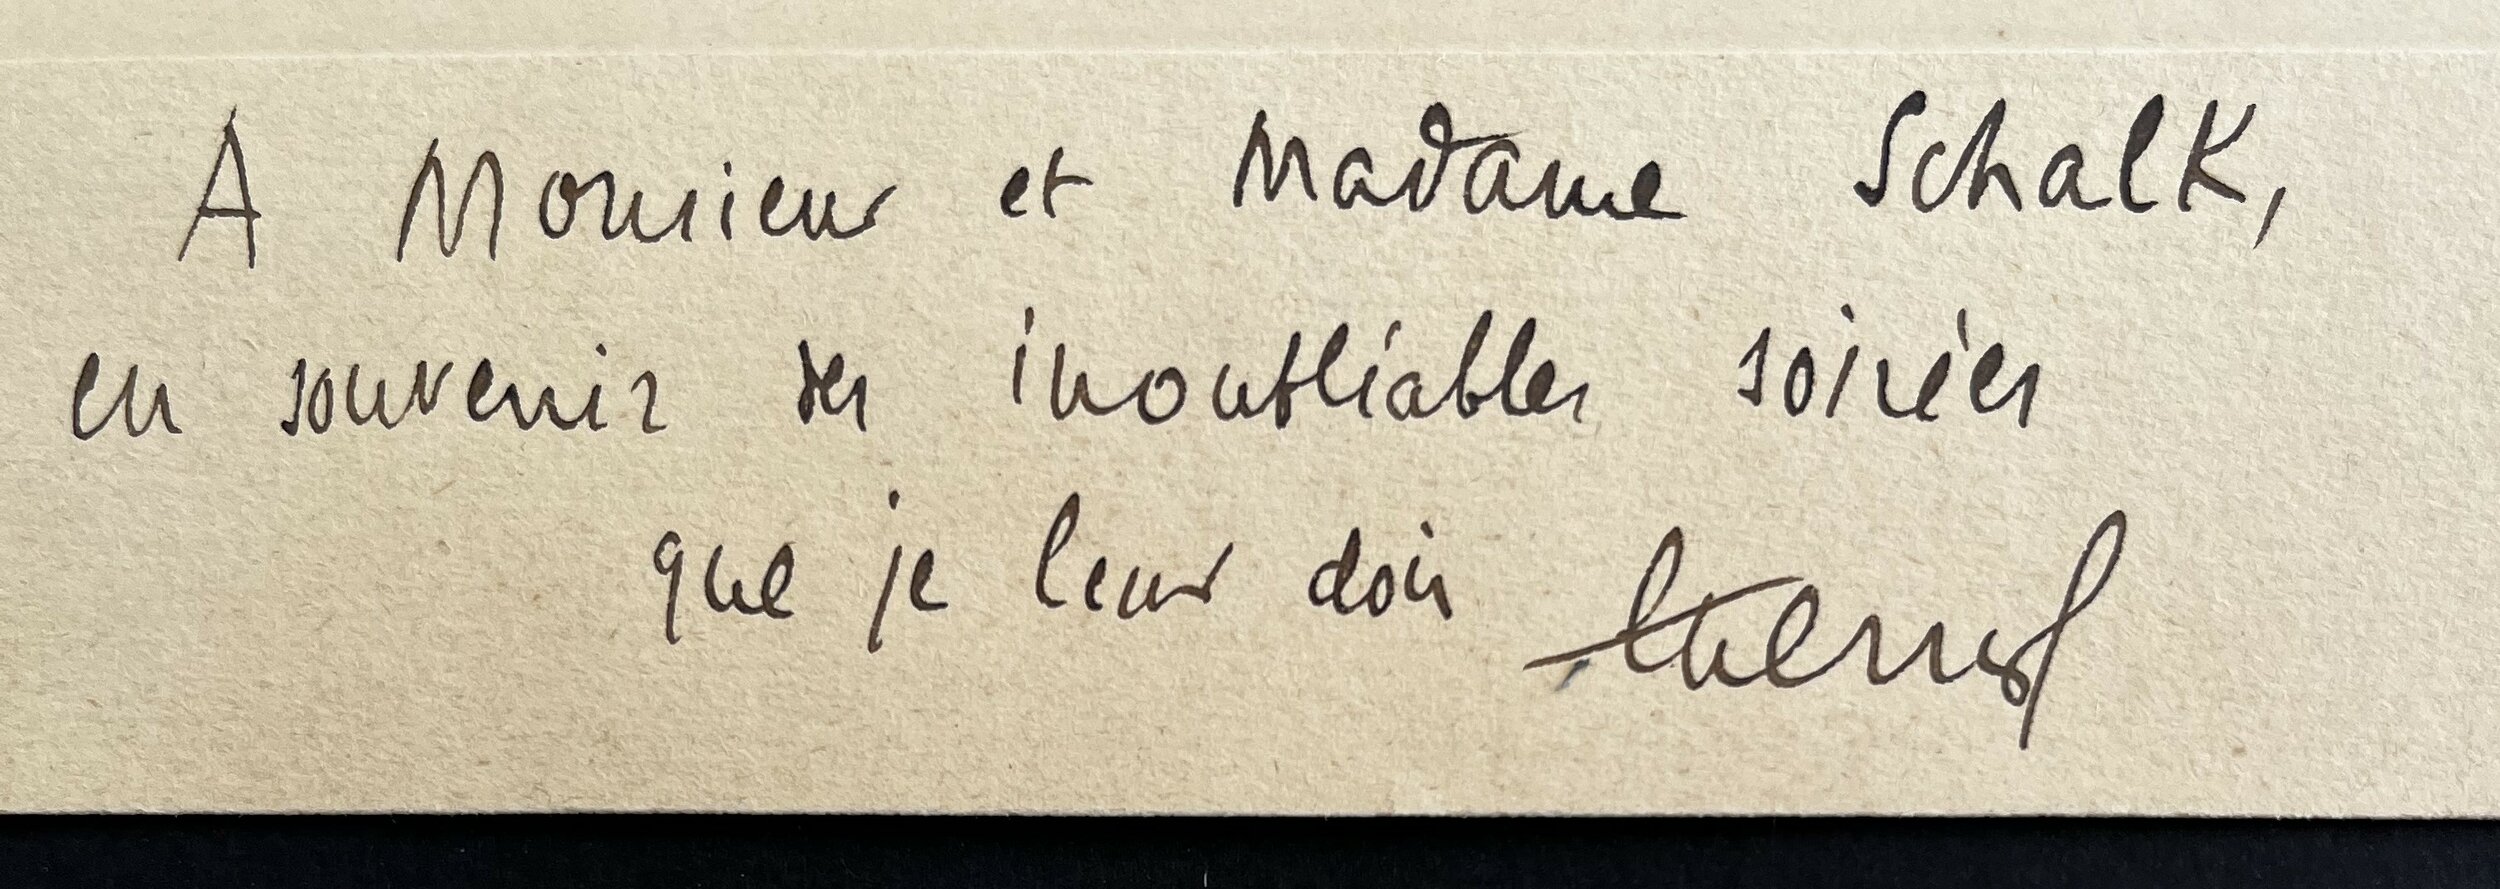 A Monsieur et Madame Schalk,
en souvenir des inoubliables soirées
que je leur dois